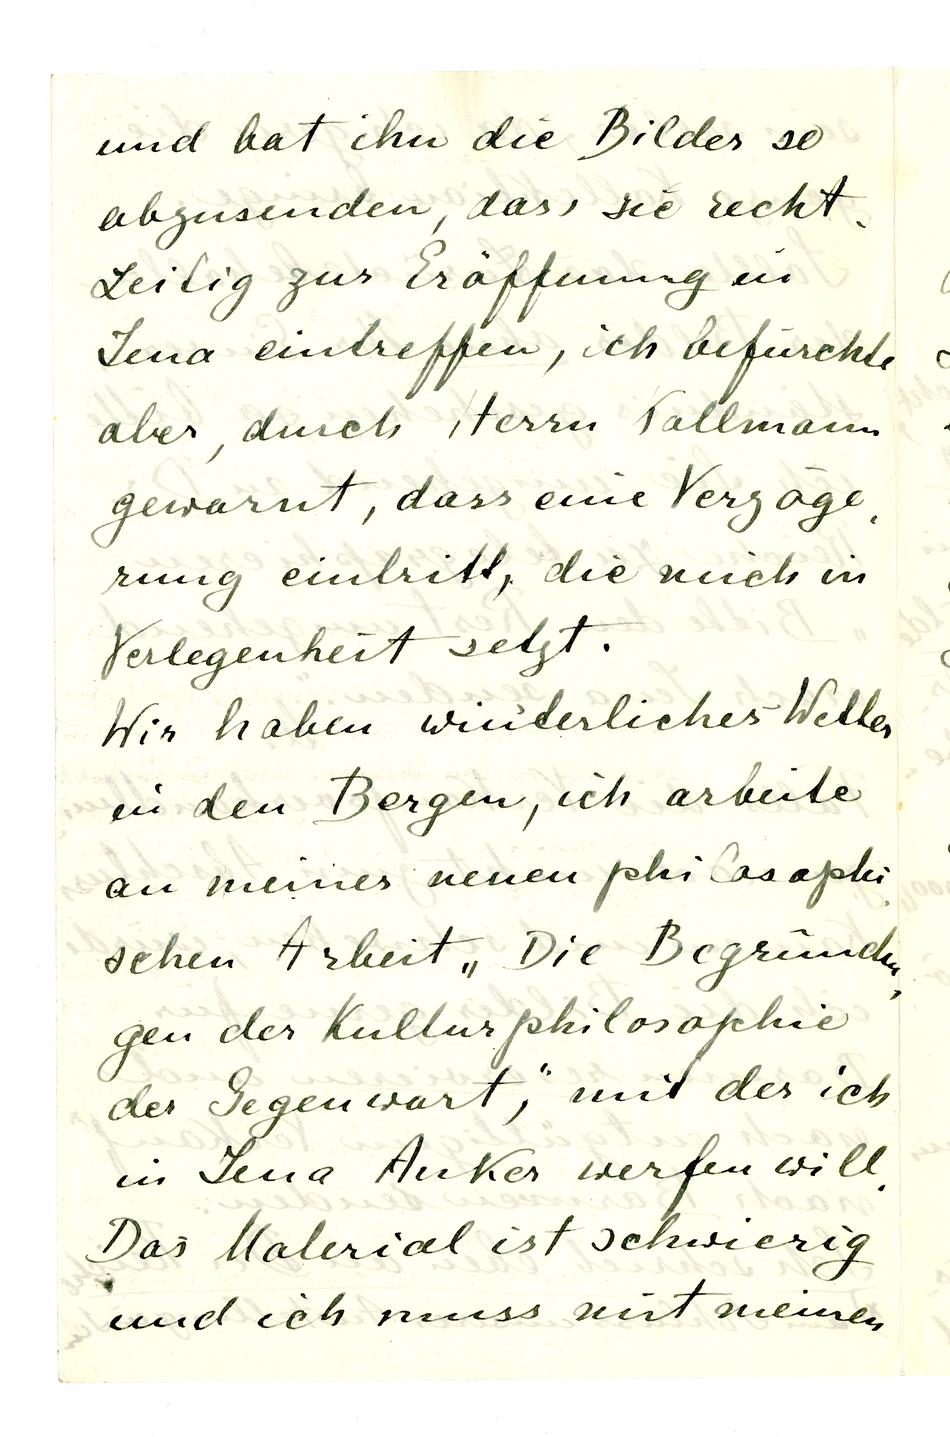 und bat ihn die Bilder so
abzusenden, dass sie recht-
zeitig zur Eröffnung in
Jena eintreffen, ich befürchte
aber, durch Herrn Kallmann
gewarnt, dass eine Verzöge-
rung eintritt, die mich in
Verlegenheit setzt.
Wir haben winterliches Wetter
in den Bergen, ich arbeite
an meiner neuen philosophi-
schen Arbeit „Die Begründun-
gen der Kulturphilosophie
der Gegenwart," mit der ich
in Jena Anker werfen will.
Das Material ist schwierig
und ich muss mit meinen